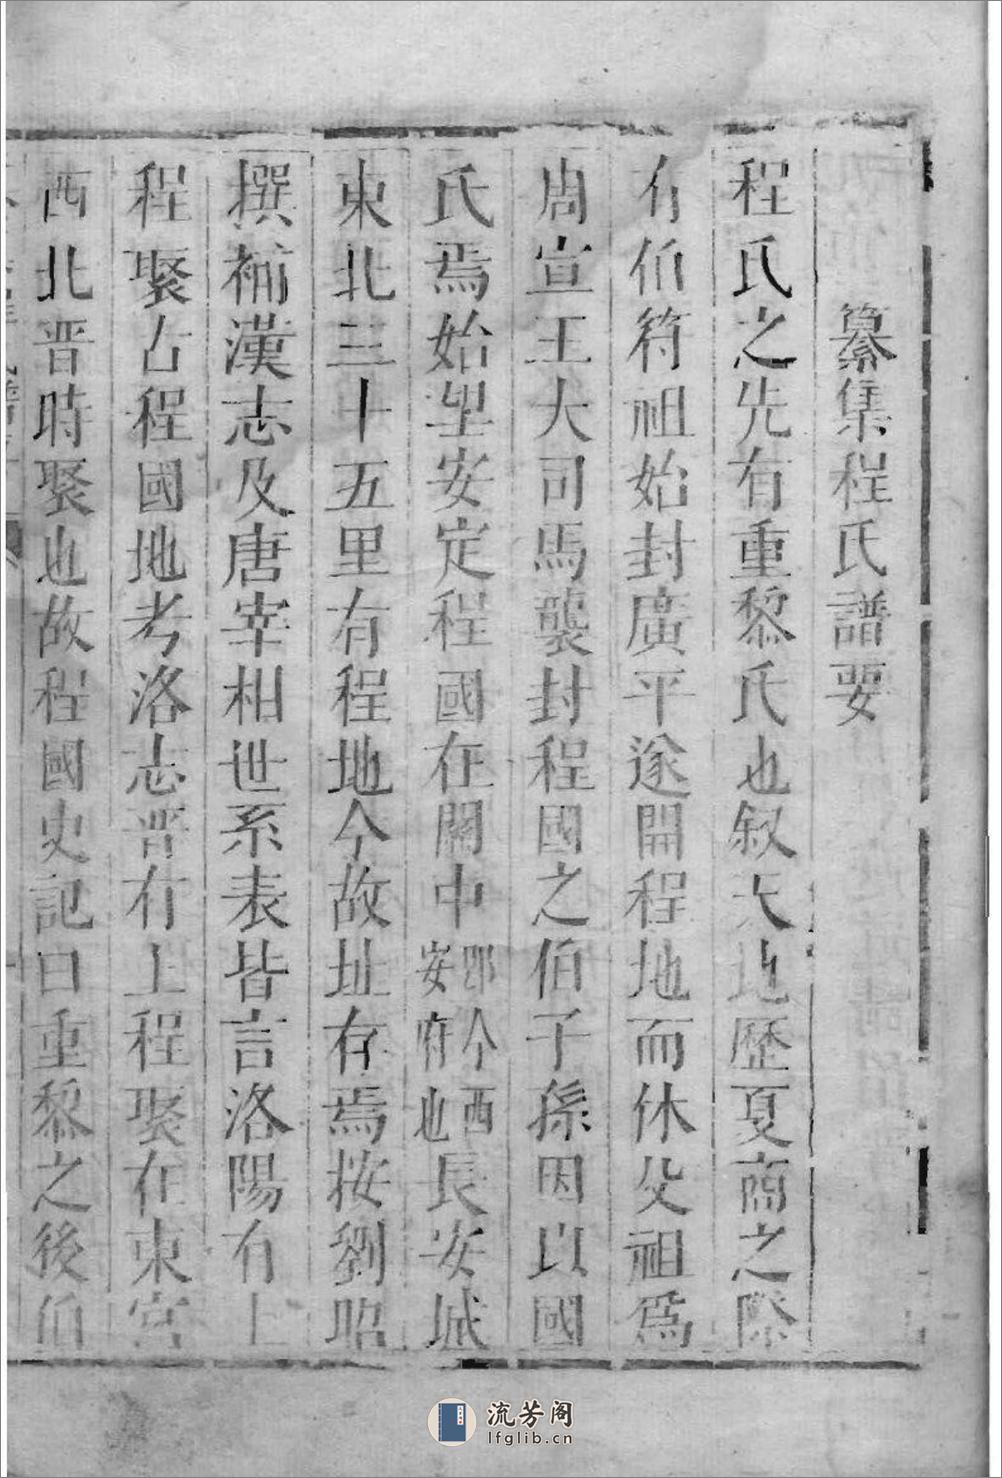 纂集程氏譜要
程氏之先有重黎氏也叙天地歷夏商之際
有伯符祖始封廣平遂開程地而休父祖爲
周宣王大司馬襲封程國之伯子孫因以國
氏焉始望安定程國在關中郢今西安府也長安城
東北三十五里有程地今故址存焉按劉昭
撰補漢志及唐宰相世系表皆言洛陽有上
程聚占程國地考洛志晋有上程聚在東宮
西北晋時聚也故程國史記曰重黎之後伯
流芳阁
lfglib.cn